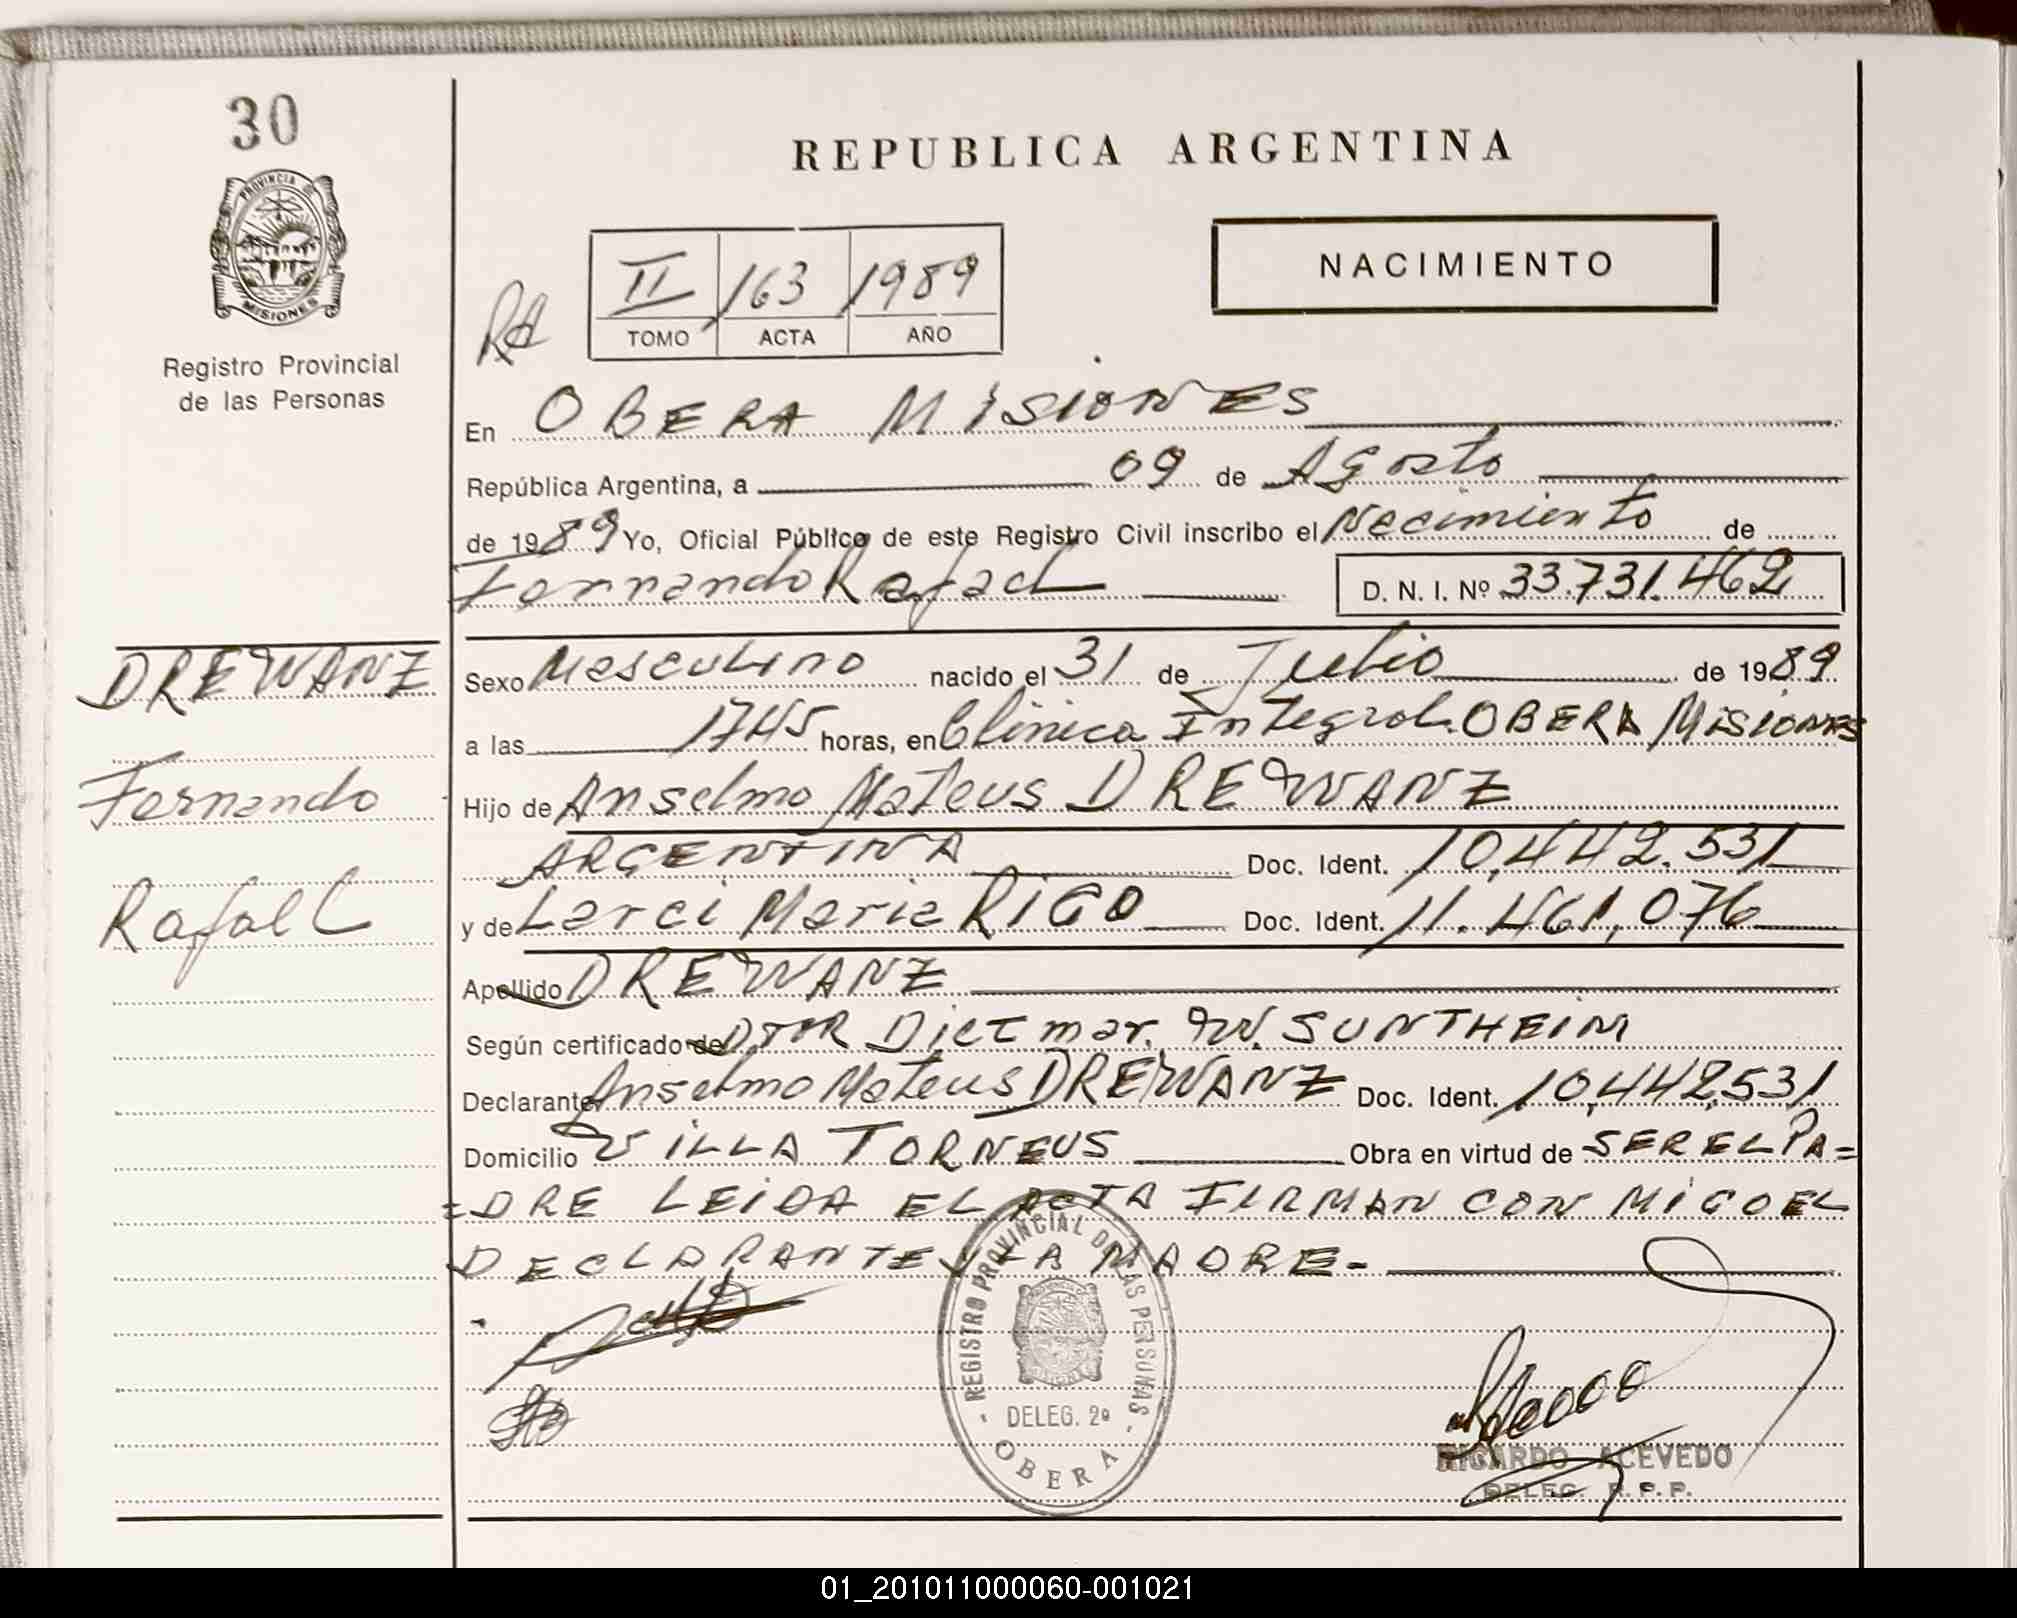 30
PROVINCIA DE
MISIONES
Registro Provincial
de las Personas
REPUBLICA ARGENTINA
NACIMIENTO
II 163 1989
TOMO ACTA AÑO
En OBERA MISIONES
República Argentina, a 09 de Agosto
de 1989 Yo, Oficial Público de este Registro Civil inscribo el Nacimiento de
Fernando Rafael D. N. I. Nº 33.731.462
DREWANZ
Fernando
Rafael
Sexo Masculino nacido el 31 de Julio de 1989
a las 1745 horas, en Clinica Integral OBERA MISIONES
Hijo de Anselmo Mateus DREWANZ
ARGENTINA Doc. Ident. 10.442.531
y de Larci Maria RIGO Doc. Ident. 11.461.076
Apellido DREWANZ
Según certificado de DTOR Dietmar. W. SUNTHEIM
Declarante Anselmo Mateus DREWANZ Doc. Ident. 10.442.531
Domicilio VILLA TORNEUS Obra en virtud de SER EL PA=
=DRE LEIDA EL ACTA FIRMAN CON MIGO EL
DECLARANTE Y LA MADRE.-
REGISTRO PROVINCIAL DE LAS PERSONAS
DELEG. 2ª
OBERA
RICARDO ACEVEDO
DELEG. R. P. P.
01_201011000060-001021